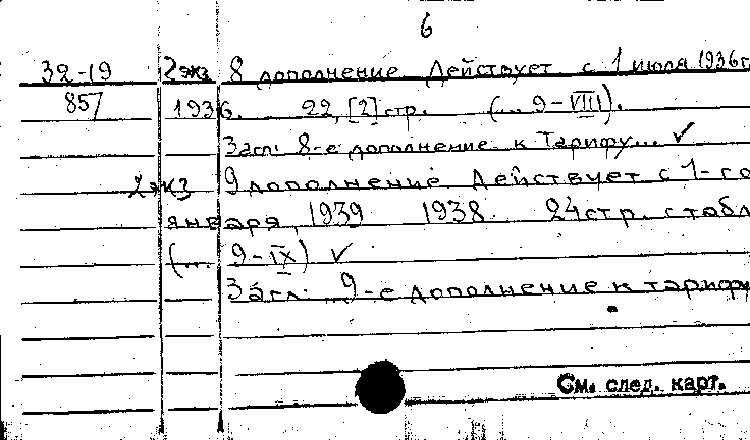 6
32-19 2экз 8 дополнение. Действует с 1 июля 1936г
857 1936. 22, [2] стр. (... 9-VIII).
Загл: 8-е дополнение к Тарифу... ✓
2экз 9 дополнение. Действует с 1-го
января, 1939 1938. 24 стр. с табл
(... 9-IX) ✓
Загл: ... 9-е дополнение к тарифу
См. след. карт.